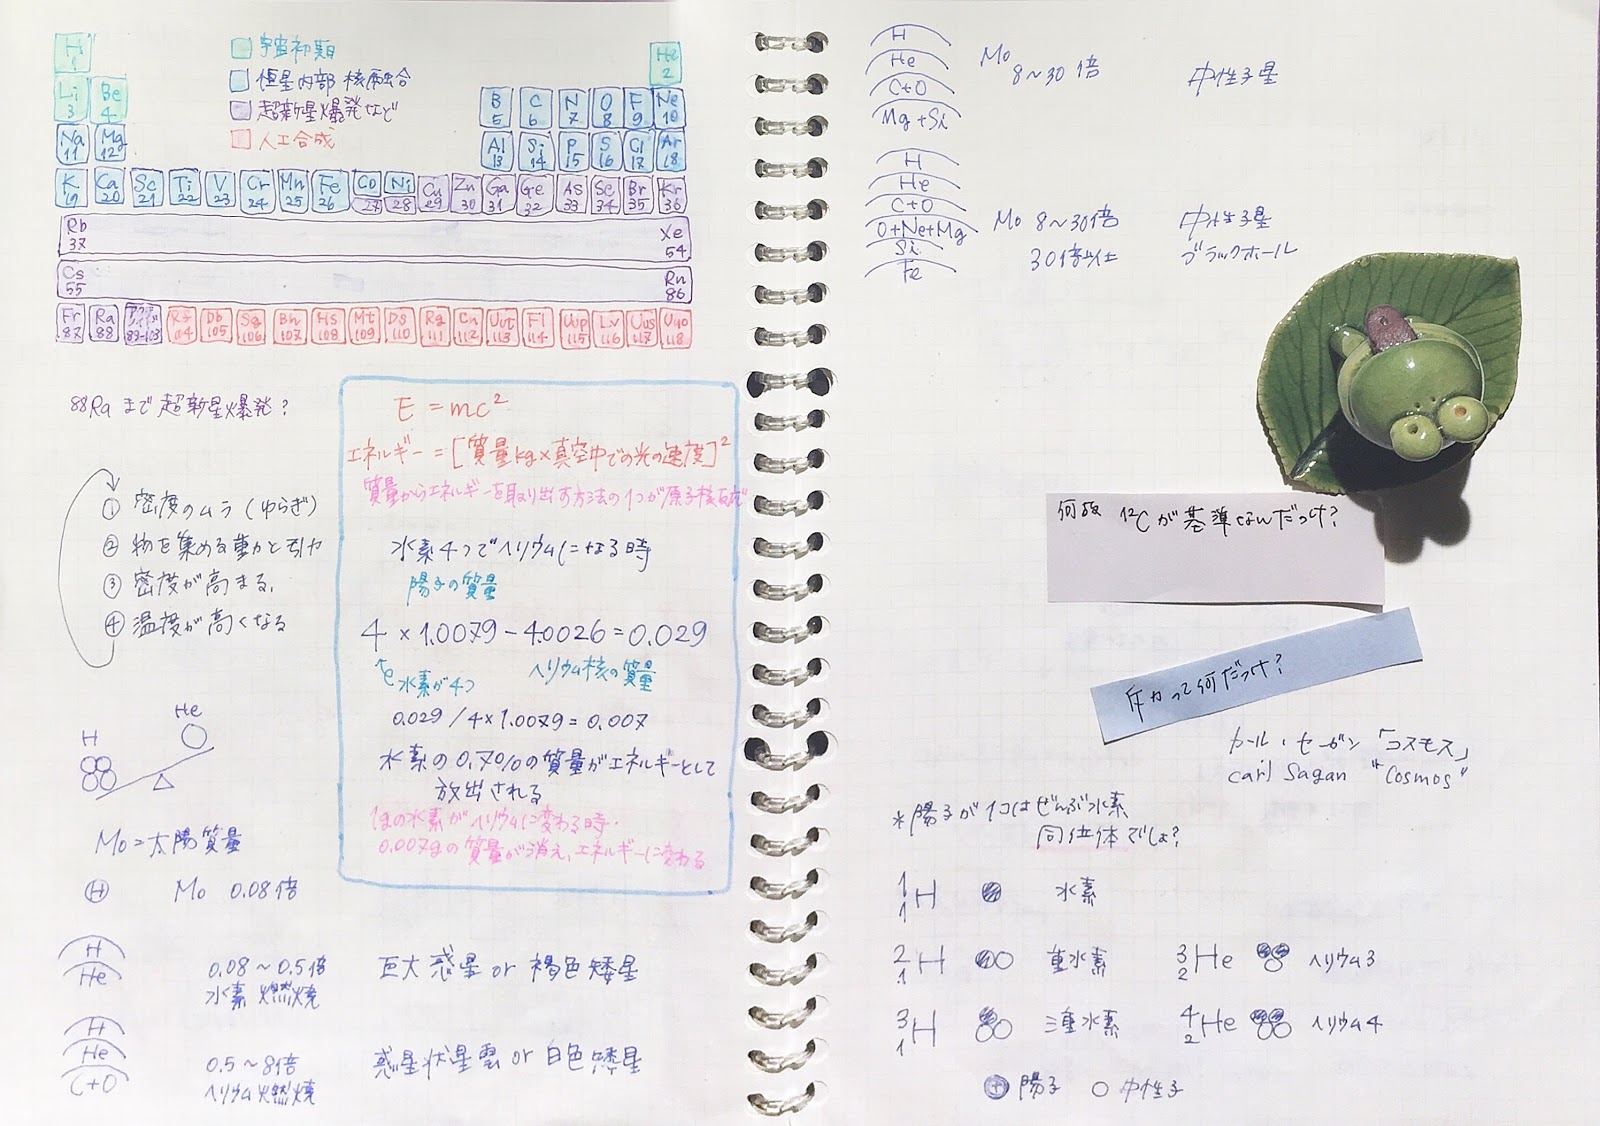 H
1
宇宙初期
恒星内部 核融合
超新星爆発など
人工合成
He
2
Li
3
Be
4
B
5
C
6
N
7
O
8
F
9
Ne
10
Na
11
Mg
12
Al
13
Si
14
P
15
S
16
Cl
17
Ar
18
K
19
Ca
20
Sc
21
Ti
22
V
23
Cr
24
Mn
25
Fe
26
Co
27
Ni
28
Cu
29
Zn
30
Ga
31
Ge
32
As
33
Se
34
Br
35
Kr
36
Rb
37
Xe
54
Cs
55
Rn
86
Fr
87
Ra
88
89-103
Rf
104
Db
105
Sg
106
Bh
107
Hs
108
Mt
109
Ds
110
Rg
111
Cn
112
Uut
113
Fl
114
Uup
115
Lv
116
Uus
117
Uuo
118
88Raまで超新星爆発?
① 密度のムラ(ゆらぎ)
② 物を集める重力と引力
③ 密度が高まる.
④ 温度が高くなる
H
He
M0=太陽質量
H M0 0.08倍
H
He
0.08~0.5倍
水素燃焼
巨大惑星 or 褐色矮星
H
He
C+O
0.5~8倍
ヘリウム燃焼
惑星状星雲 or 白色矮星
E=mc²
エネルギー=[質量kg×真空中での光の速度]²
質量からエネルギーを取り出す方法の1つが原子核反応
水素4つでヘリウムになる時
陽子の質量
4×1.0079-4.0026=0.029
水素が4つ
ヘリウム核の質量
0.029/4×1.0079=0.007
水素の0.7%の質量がエネルギーとして
放出される
1gの水素がヘリウムに変わる時.
0.007gの質量が消え、エネルギーに変わる
H
He
C+O
Mg+Si
M0
8~30倍
中性子星
H
He
C+O
O+Ne+Mg
Si
Fe
M0 8~30倍
中性子星
30倍以上
ブラックホール
何故 ¹²Cが基準なんだっけ?
斥力って何だっけ?
カール・セーガン「コスモス」
carl Sagan "Cosmos"
*陽子が1コはぜんぶ水素
同位体でしょ?
¹₁H 水素
²₁H 重水素
³₂He ヘリウム3
³₁H 三重水素
⁴₂He ヘリウム4
+ 陽子 ○ 中性子